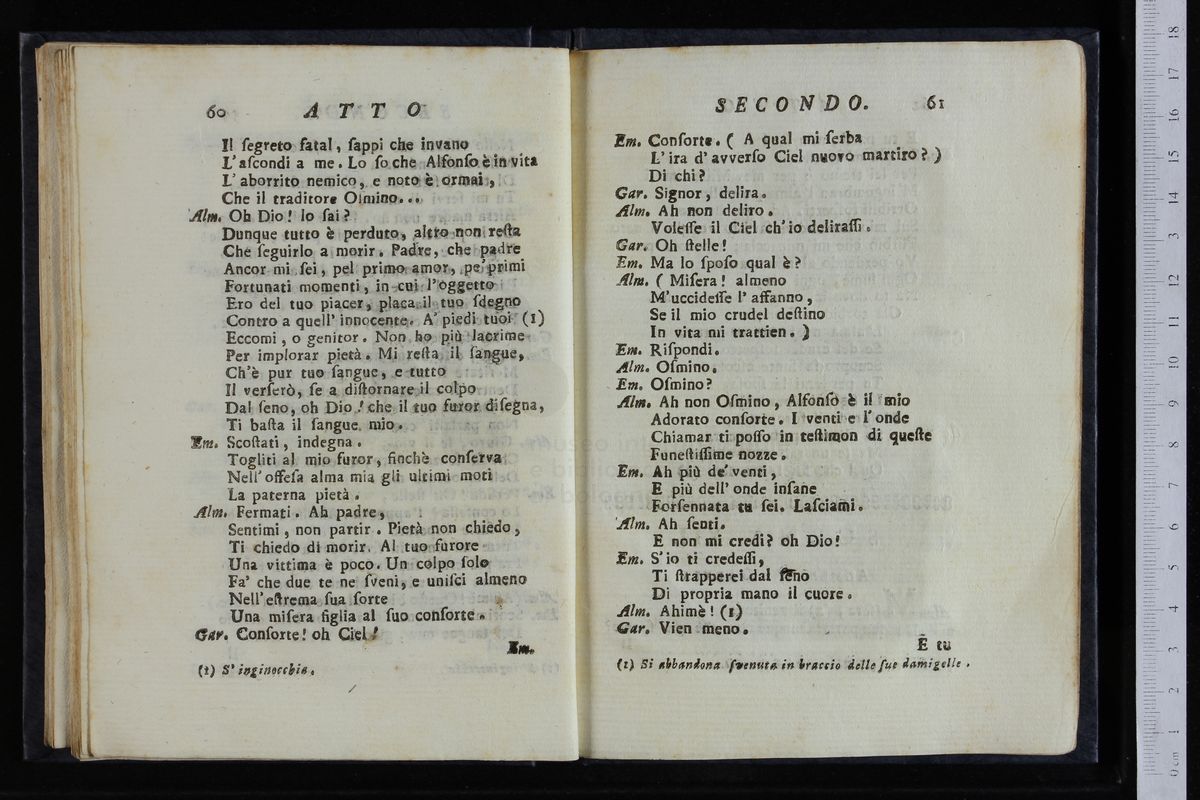 60 ATTO
Il ſegreto fatal, ſappi che invano
L'aſcondi a me. Lo ſo che Alfonſo è in vita
L'aborrito nemico, e noto è ormai,
Che il traditore Oſmino...
Alm. Oh Dio! lo ſai?
Dunque tutto è perduto, altro non reſta
Che ſeguirlo a morir. Padre, che padre
Ancor mi ſei, pel primo amor, pe' primi
Fortunati momenti, in cui l'oggetto
Ero del tuo piacer, placa il tuo ſdegno
Contro a quell' innocente. A' piedi tuoi (1)
Eccomi, o genitor. Non ho più lacrime
Per implorar pietà. Mi reſta il ſangue,
Ch'è pur tuo ſangue, e tutto
Il verſerò, ſe a diſtornare il colpo
Dal ſeno, oh Dio! che il tuo furor diſegna,
Ti baſta il ſangue mio.
Em. Scoſtati, indegna.
Togliti al mio furor, finchè conſerva
Nell'offeſa alma mia gli ultimi moti
La paterna pietà.
Alm. Fermati. Ah padre,
Sentimi, non partir. Pietà non chiedo,
Ti chiedo di morir. Al tuo furore
Una vittima è poco. Un colpo ſolo
Fa' che due te ne ſveni, e uniſci almeno
Nell'eſtrema ſua ſorte
Una miſera figlia al ſuo conſorte.
Gar. Conſorte! oh Ciel!
Em.
(1) S'inginocchia.
SECONDO. 61
Em. Conſorte. ( A qual mi ſerba
L'ira d'avverſo Ciel nuovo martiro? )
Di chi?
Gar. Signor, delira.
Alm. Ah non deliro.
Voleſſe il Ciel ch'io deliraſſi.
Gar. Oh ſtelle!
Em. Ma lo ſpoſo qual è?
Alm. ( Miſera! almeno
M'uccideſſe l'affanno,
Se il mio crudel deſtino
In vita mi trattien. )
Em. Riſpondi.
Alm. Oſmino.
Em. Oſmino?
Alm. Ah non Oſmino, Alfonſo è il mio
Adorato conſorte. I venti e l'onde
Chiamar ti poſſo in teſtimon di queſte
Funeſtiſſime nozze.
Em. Ah più de' venti,
E più dell'onde inſane
Forſennata tu ſei. Laſciami.
Alm. Ah ſenti.
E non mi credi? oh Dio!
Em. S'io ti credeſſi,
Ti ſtrapperei dal ſeno
Di propria mano il cuore.
Alm. Ahimè! (1)
Gar. Vien meno.
E tu
(1) Si abbandona ſvenuta in braccio delle ſue damigelle.